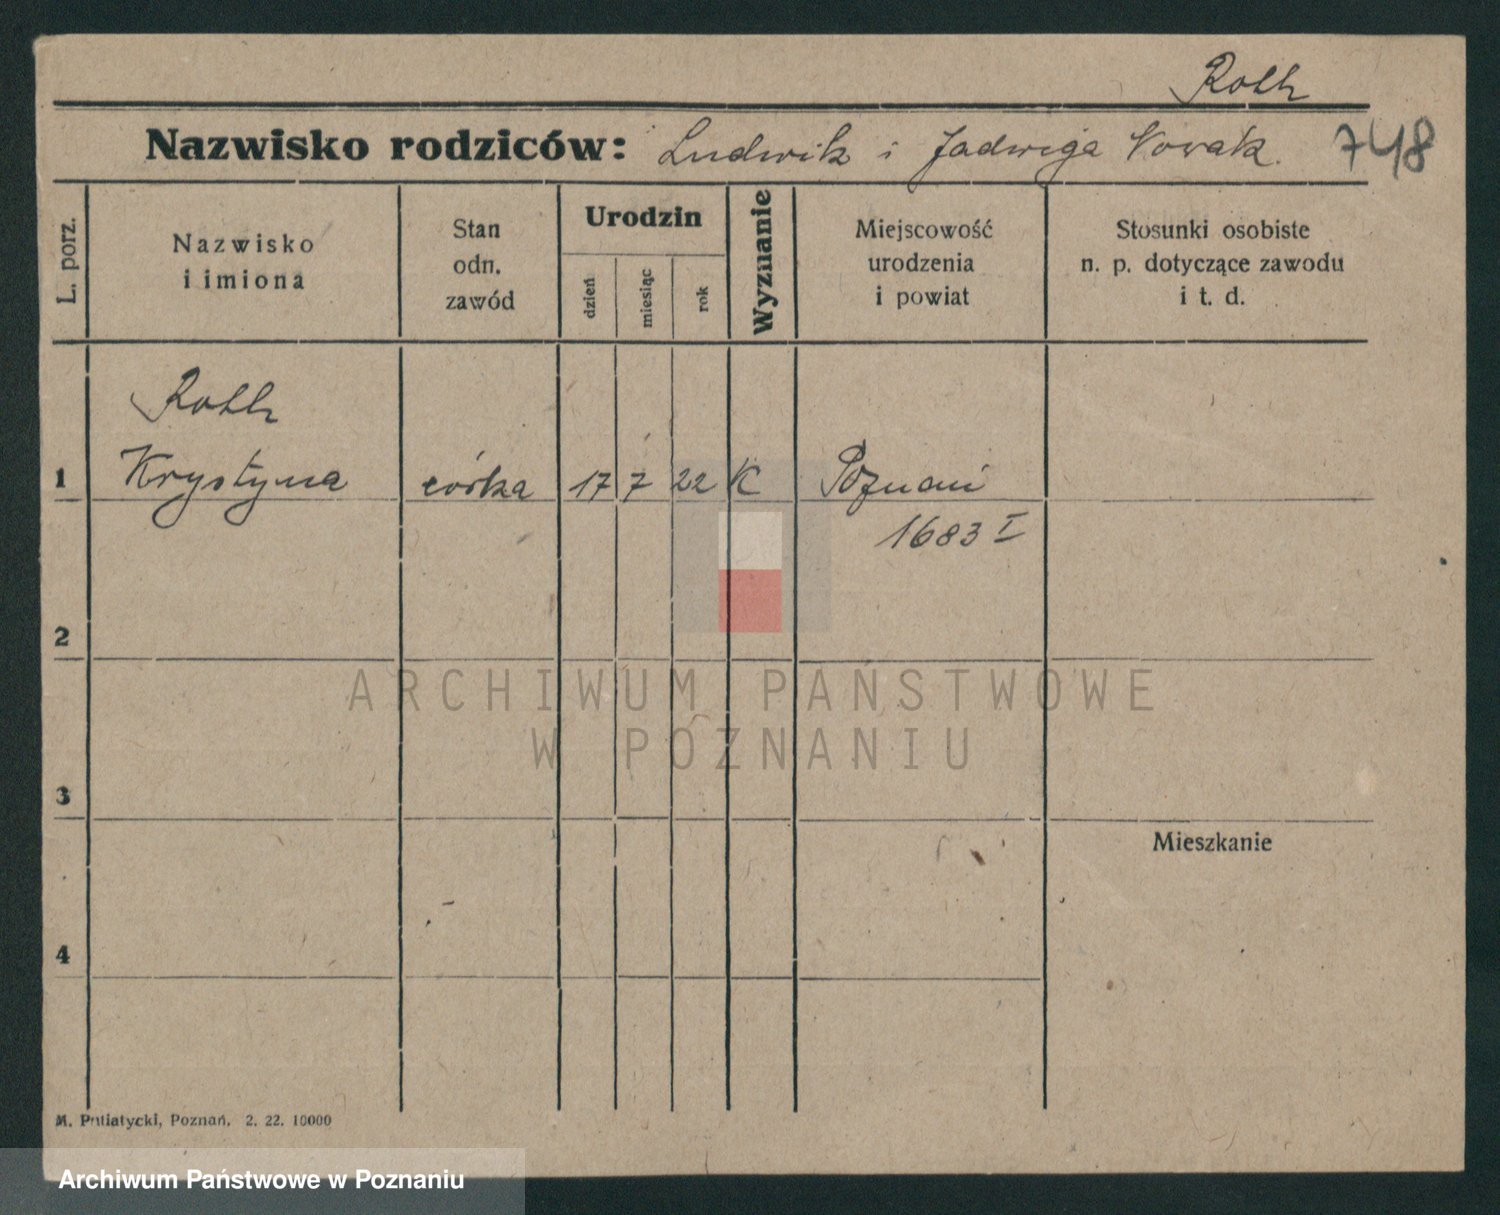 Roth
Nazwisko rodziców: Ludwik i Jadwiga Nowak.
748
L. porz.
Nazwisko
i imiona
Stan
odn.
zawód
Urodzin
dzień
miesiąc
rok
Wyznanie
Miejscowość
urodzenia
i powiat
Stosunki osobiste
n. p. dotyczące zawodu
i t. d.
Roth
1 Krystyna córka 17 7 22 K Poznań
1683 I
2
ARCHIWUM PAŃSTWOWE
W POZNANIU
3
Mieszkanie
4
M. Putiatycki, Poznań. 2. 22. 10000
Archiwum Państwowe w Poznaniu